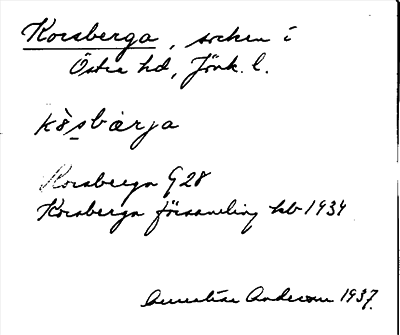 Korsberga, socken i
Östra hd, Jönk. l.
kòs̠bàrja
Korsberga G 28
Korsberga församling kb 1934
Anderson 1937.